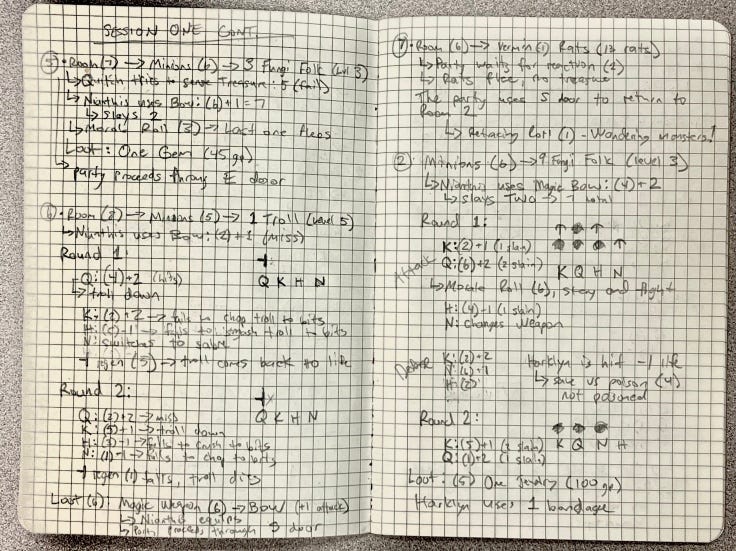 SESSION ONE CONT.
⑤ • Room (7) → Minions (6) → 3 Fungi Folk (Lvl 3)
↳ Quitch Hits to sense Treasure: 5 (fail)
↳ Nianthis uses Bow: (6)+1=7
↳ slays 2
↳ Morale Roll (3) → Last one flees
Loot: One Gem (45 gp)
↳ party proceeds through E door
⑥ • Room (8) → Minions (5) → 1 Troll (Level 5)
↳ Nianthis uses Bow: (2)+1 (miss)
Round 1:
Q: (4)+2 (hits)
↳ troll down
Q K H N
K: (2)+2 → fails to chop troll to bits
H: ( )-1 → fails to smash troll to bits
N: switches to sabre
regen (5) → troll comes back to life
Round 2:
Q K H N
Q: (2)+2 → miss
K: (5)+1 → troll down
H: (3)-1 → fails to crush to bits
N: (1)-1 → fails to chop to bits
regen (1) fails, troll dies
Loot (6): Magic Weapon (6) → Bow (+1 attack)
↳ Nianthis equips
↳ Party proceeds through S door
⑦ • Room (6) → Vermin (1) Rats (12 rats)
↳ Party waits for reaction (2)
↳ Rats flee, no treasure
The party uses S door to return to
Room 2
↳ Retracing Roll (1) - Wandering monsters!
② Minions (6) → 9 Fungi Folk (level 3)
↳ Nianthis uses Magic Bow: (4)+2
↳ slays TWO → 7 total
Round 1:
Attack
K: (2)+1 (1 slain)
Q: (6)+2 (2 slain)
K Q H N
↳ Morale Roll (6), stay and fight
H: (4)-1 (1 slain)
N: changes weapon
Defense
K: (2)+2
N: (6)+1
H: (2)
Harklyn is hit -1 life
↳ save vs poison (4)
not poisoned
Round 2:
K: (5)+1 (2 slain)
Q: (1)+2 (1 slain)
K Q N H
Loot: (5) One Jewelry (100 gp)
Harklyn uses 1 bandage